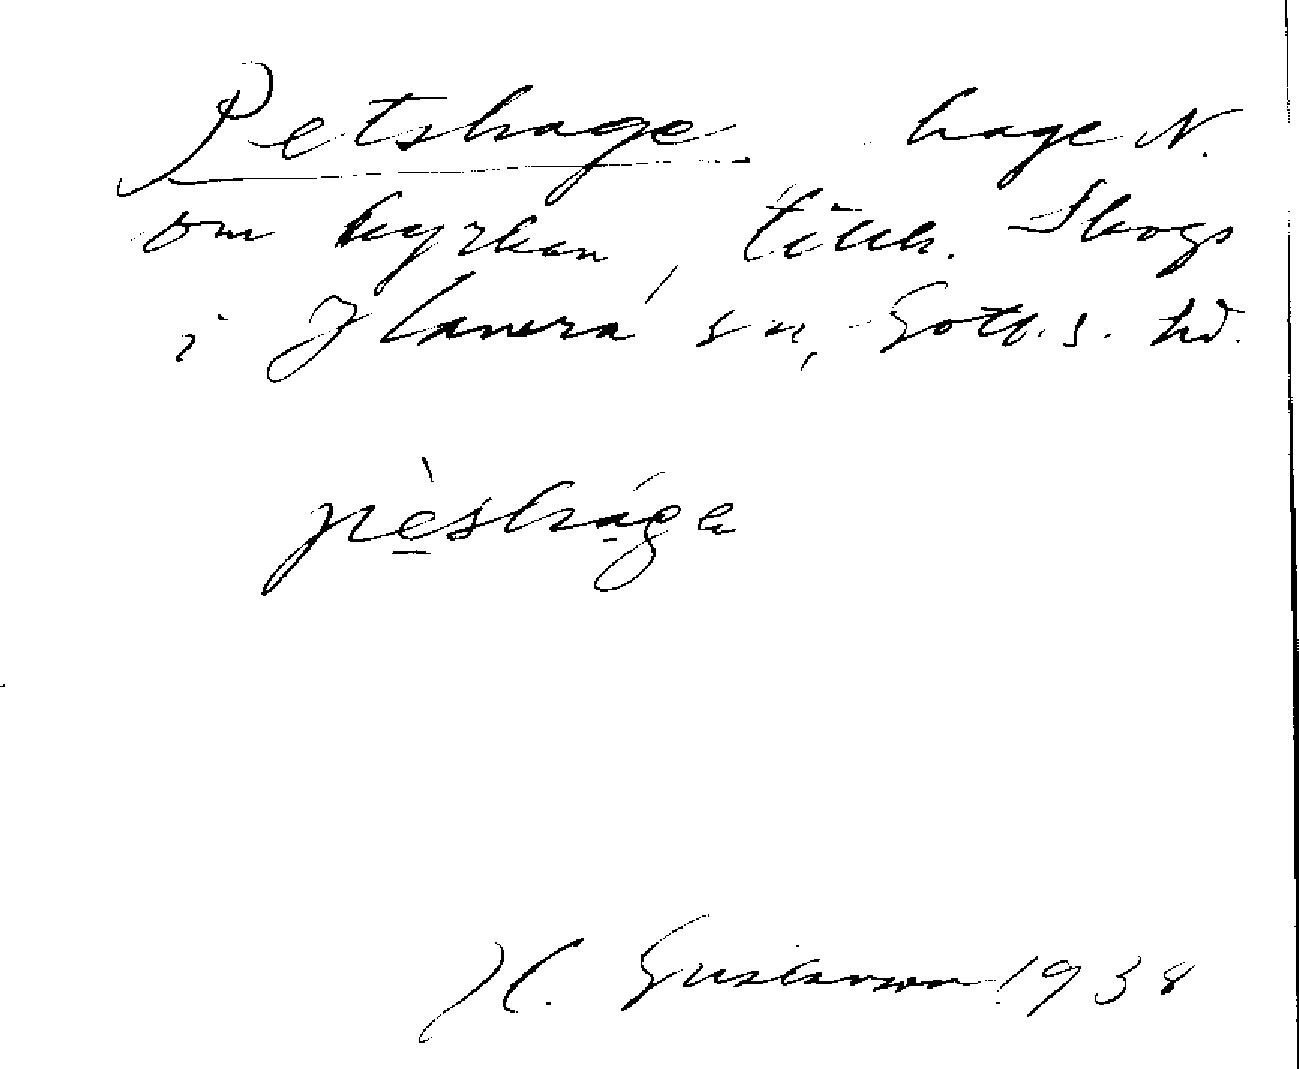 Petshage hage N.
om kyrkan, tillh. Skogs
i Hamra sn, Gotl. s. hd.
pèshágε
H. Gustavson 1938